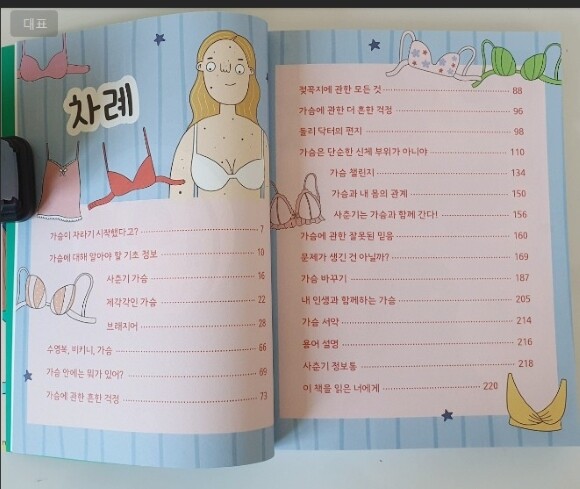 대표
차례
가슴이 자라기 시작했다고? 7
가슴에 대해 알아야 할 기초 정보 10
사춘기 가슴 16
제각각인 가슴 22
브래지어 28
수영복, 비키니, 가슴 66
가슴 안에는 뭐가 있어? 69
가슴에 관한 흔한 걱정 73
젖꼭지에 관한 모든 것 88
가슴에 관한 더 흔한 걱정 96
둘리 닥터의 편지 98
가슴은 단순한 신체 부위가 아니야 110
가슴 챌린지 134
가슴과 내 몸의 관계 150
사춘기는 가슴과 함께 간다! 156
가슴에 관한 잘못된 믿음 160
문제가 생긴 건 아닐까? 169
가슴 바꾸기 187
내 인생과 함께하는 가슴 205
가슴 서약 214
용어 설명 216
사춘기 정보통 218
이 책을 읽은 너에게 220